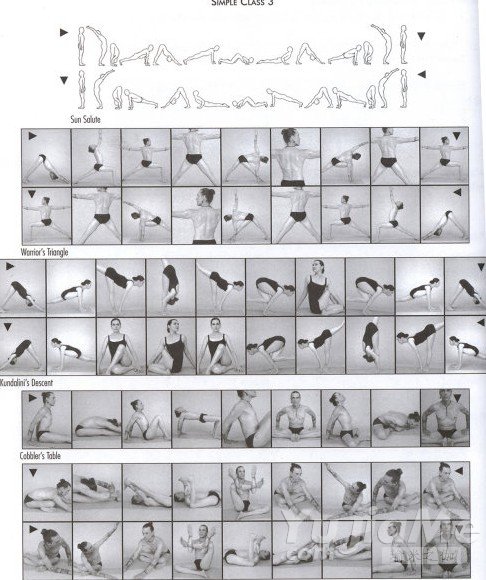 SIMPLE CLASS 3
Sun Salute
Warrior's Triangle
Kundalini's Descent
Cobbler's Table
YujiaMe
.com